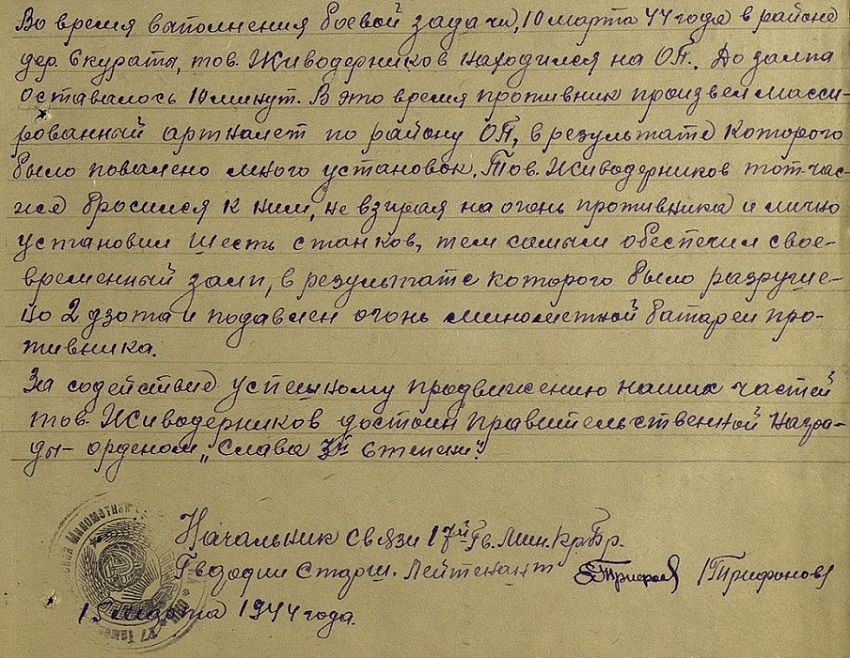 Во время выполнения боевой задачи, 10 марта 44 года в районе
дер Скураты, тов. Живодерников находился на ОП. До залпа
оставалось 10 минут. В это время противник произвел масси-
рованный артналет по району ОП, в результате которого
было повалено много установок. Тов. Живодерников тотчас-
же бросился к ним, не взирая на огонь противника и лично
установил шесть станков, тем самым обеспечил свое-
временный залп, в результате которого было разруше-
но 2 дзота и подавлен огонь минометной батареи про-
тивника.
За содействие успешному продвижению наших частей
тов. Живодерников достоин правительственной награ-
ды- орденом „Слава 3й степени".
Начальник связи 17й Гв. Мин. Кр. Бр.
Гвардии Старш. Лейтенант /Трифонов/
марта 1944 года.